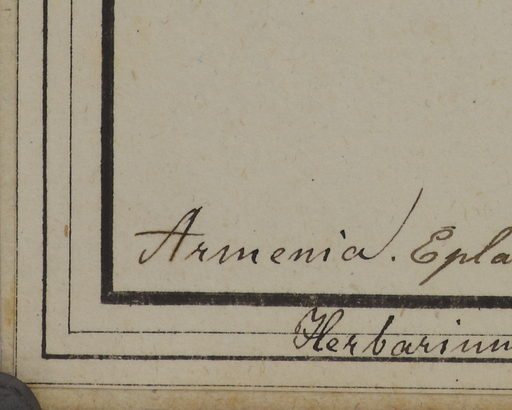 Armenia. Epla
Herbarium